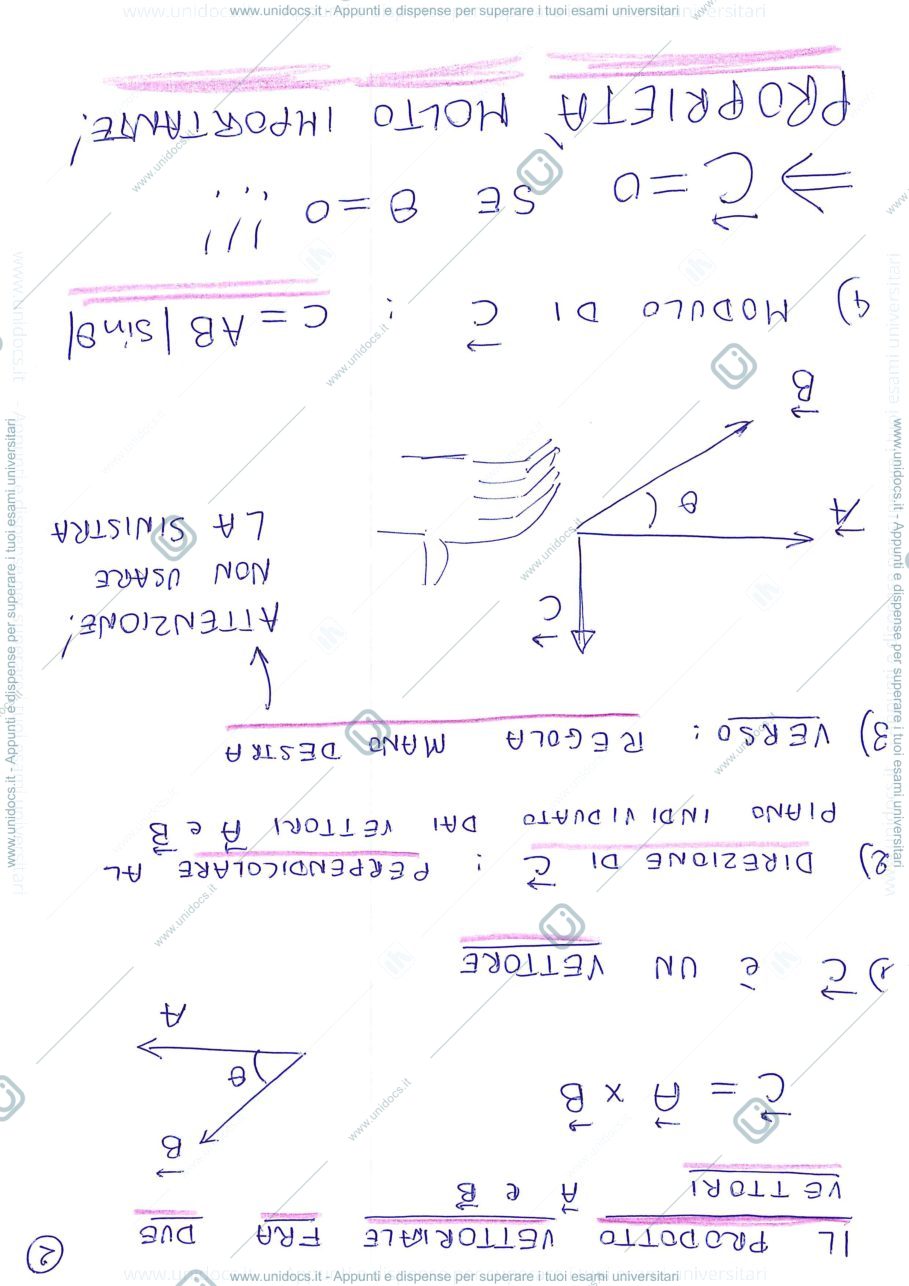 www.unidocs.it - Appunti e dispense per superare i tuoi esami universitari
2
IL PRODOTTO VETTORIALE FRA DUE
VETTORI A e B
C = A x B
B
θ
A
1) C è UN VETTORE
2) DIREZIONE DI C : PERPENDICOLARE AL
PIANO INDIVIDUATO DAI VETTORI A e B
3) VERSO: REGOLA MANO DESTRA
ATTENZIONE!
NON USARE
LA SINISTRA
C
A
θ
B
4) MODULO DI C : C = AB |sinθ|
⇒ C = 0 SE θ = 0 !!!
PROPRIETA' MOLTO IMPORTANTE!
www.unidocs.it - Appunti e dispense per superare i tuoi esami universitari
www.unidocs.it - Appunti e dispense per superare i tuoi esami universitari
www.unidocs.it - Appunti e dispense per superare i tuoi esami universitari
www.unidocs.it
www.unidocs.it
www.unidocs.it
www.unidocs.it
www.unidocs.it
www.unidocs.it